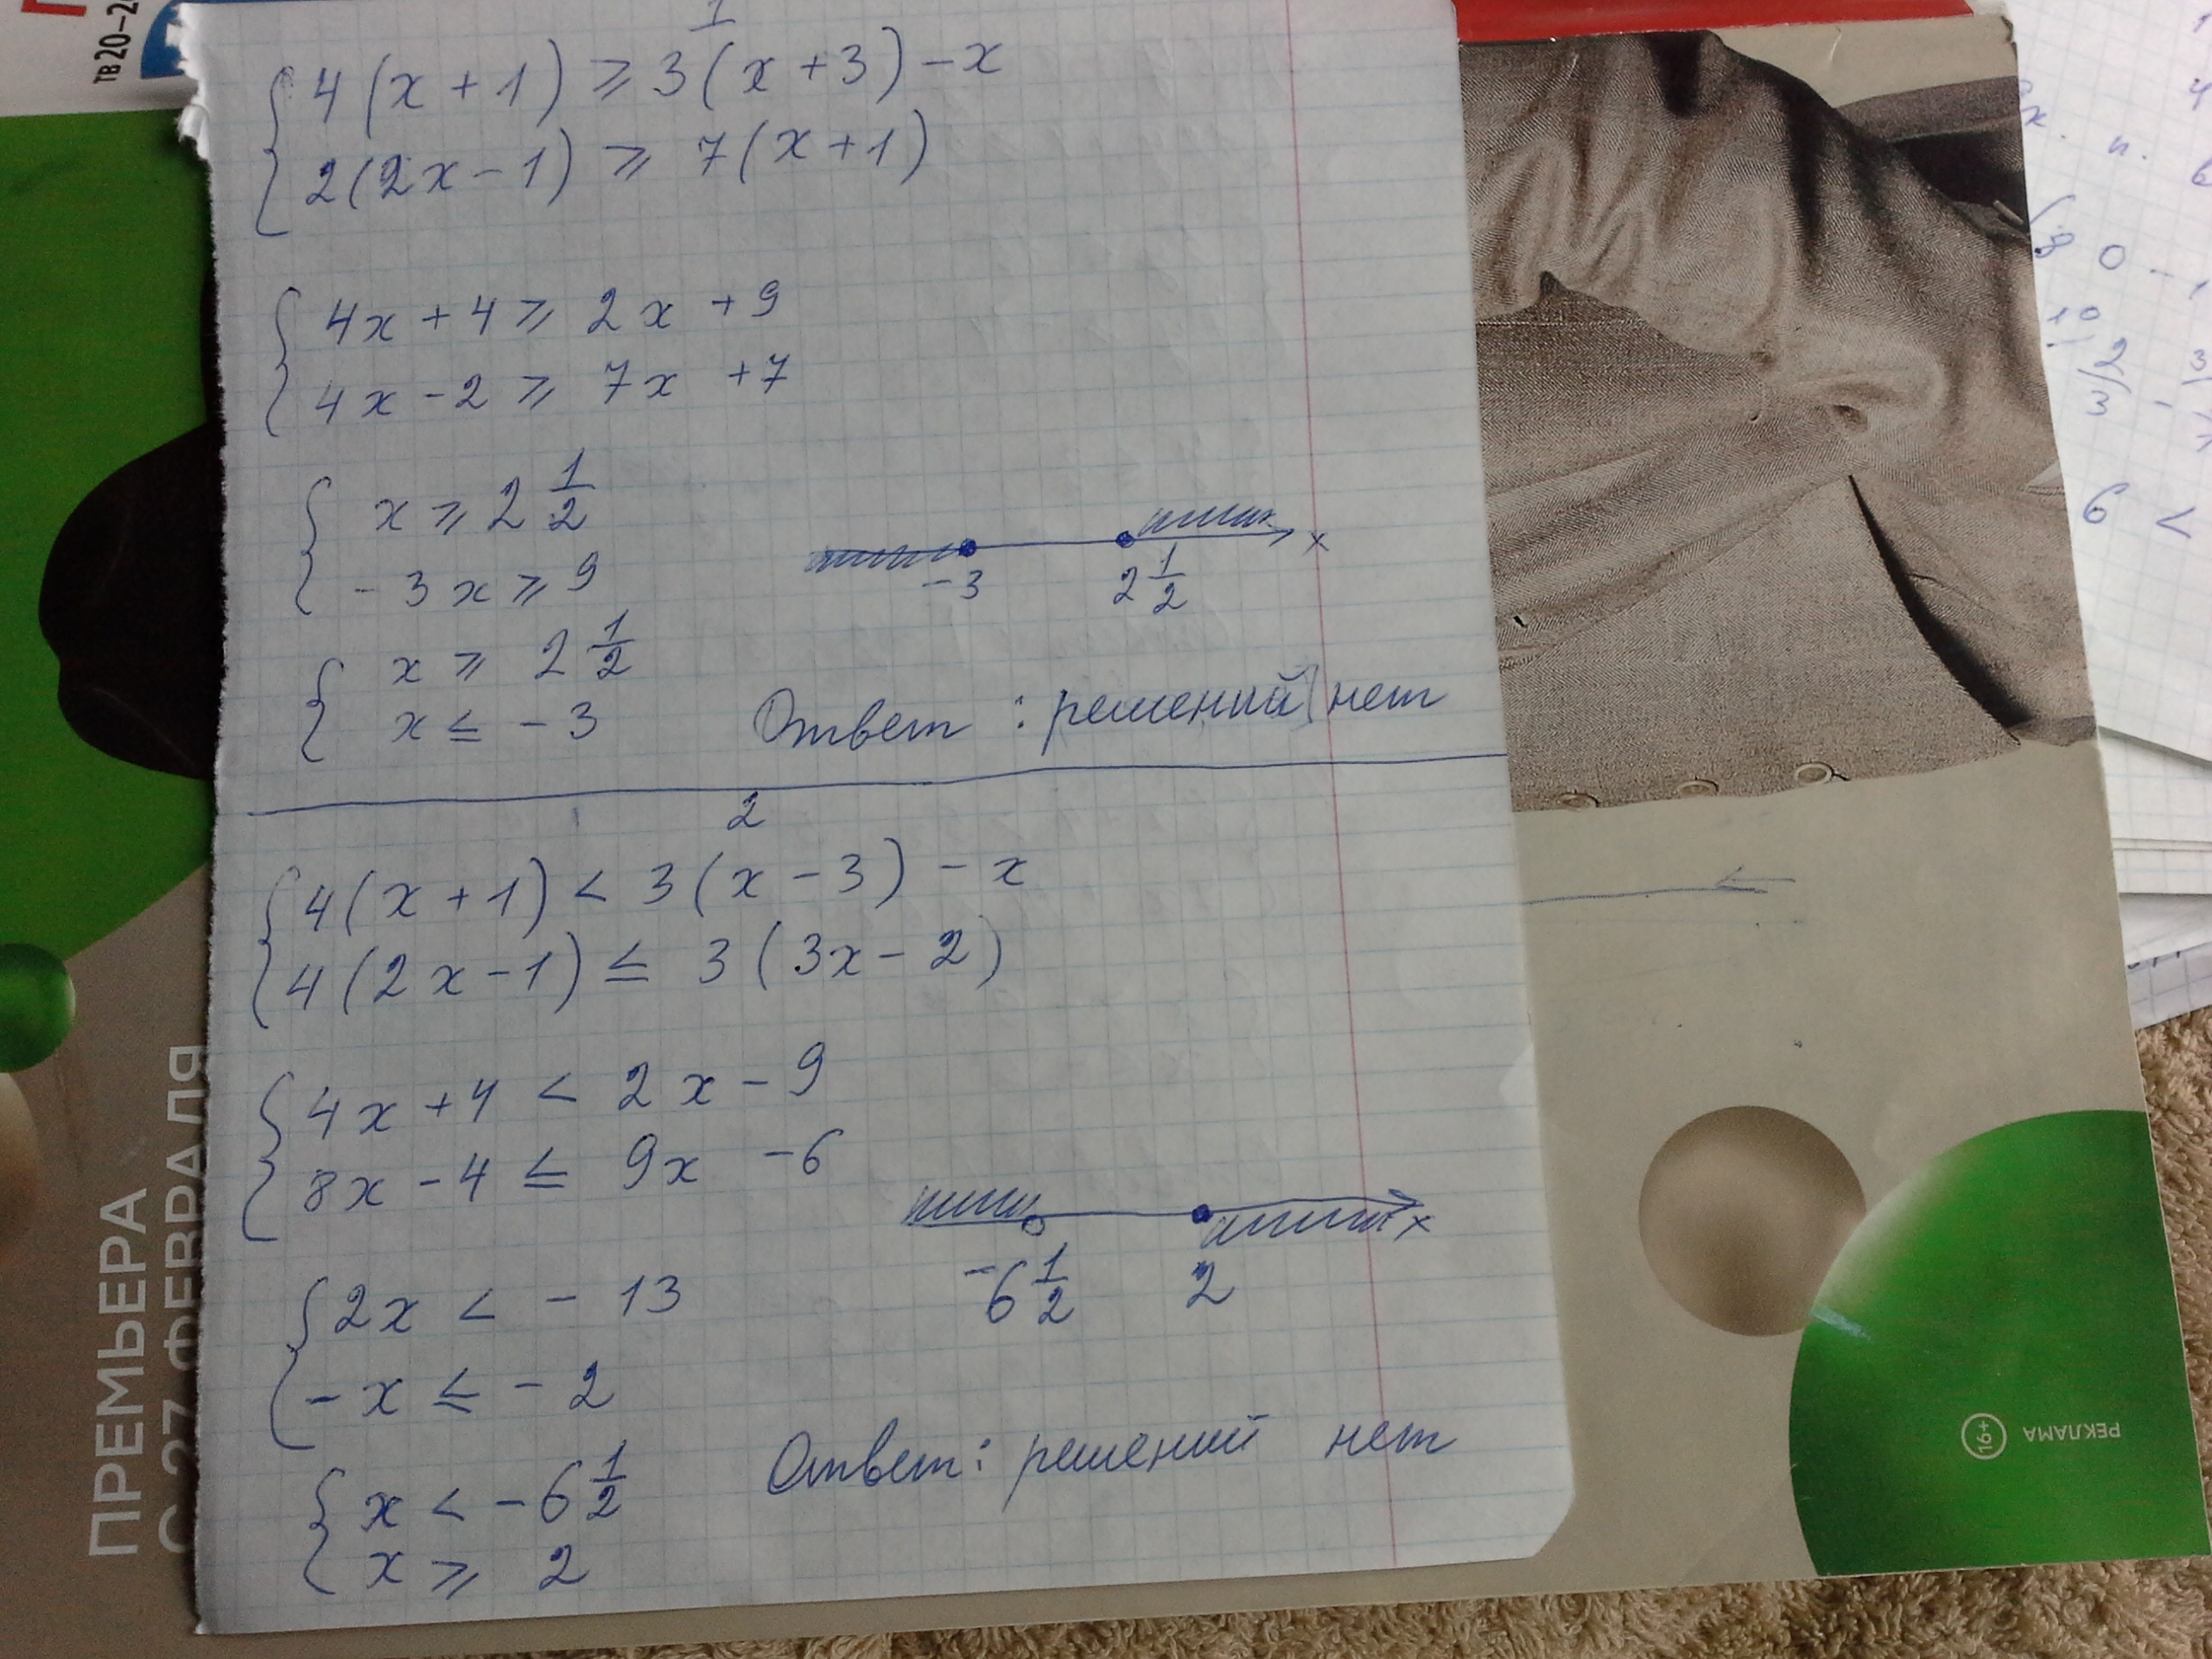 1
4(x+1) ⩾ 3(x+3)-x
2(2x-1) ⩾ 7(x+1)
4x+4 ⩾ 2x+9
4x-2 ⩾ 7x+7
x ⩾ 2 1/2
-3x ⩾ 9
x ⩾ 2 1/2
x ≤ -3
-3 2 1/2 x
Ответ: решений нет
2
4(x+1) < 3(x-3)-x
4(2x-1) ≤ 3(3x-2)
4x+4 < 2x-9
8x-4 ≤ 9x-6
2x < -13
-x ≤ -2
x < -6 1/2
x ⩾ 2
-6 1/2 2 x
Ответ: решений нет
ТВ 20-2
ПРЕМЬЕРА
С 27 ФЕВРАЛЯ
16+ РЕКЛАМА